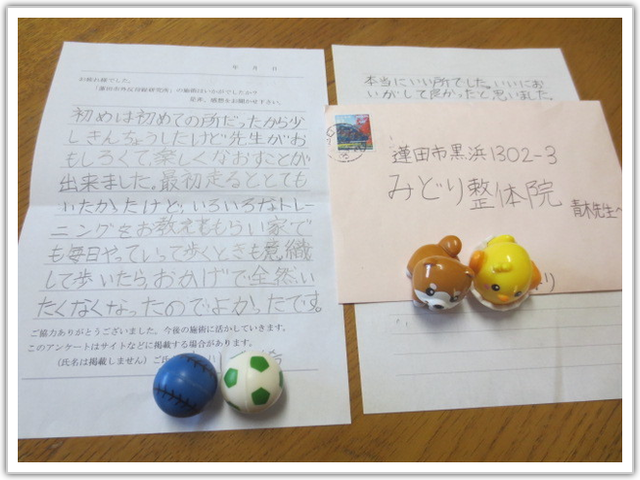 年 月 日
お疲れ様でした。
「蓮田市外反母趾研究所」の施術はいかがでしたか？
是非、感想をお聞かせ下さい。
初めは初めての所だったから少
しきんちょうしたけど先生がお
もしろくて、楽しくなおすことが
出来ました。最初走るととても
いたかったけど、いろいろなトレー
ニングをお教えてもらい家で
も毎日やっていって歩くときも意織
して歩いたら、おかげで全然い
たくなくなったのでよかったです。
ご協力ありがとうございました。今後の施術に活かしていきます。
このアンケートはサイトなどに掲載する場合があります。
（氏名は掲載しません）ご氏
本当にいい所でした。いいにお
いがして良かったと思いました。
蓮田市黒浜1302-3
みどり整体院
青木先生へ